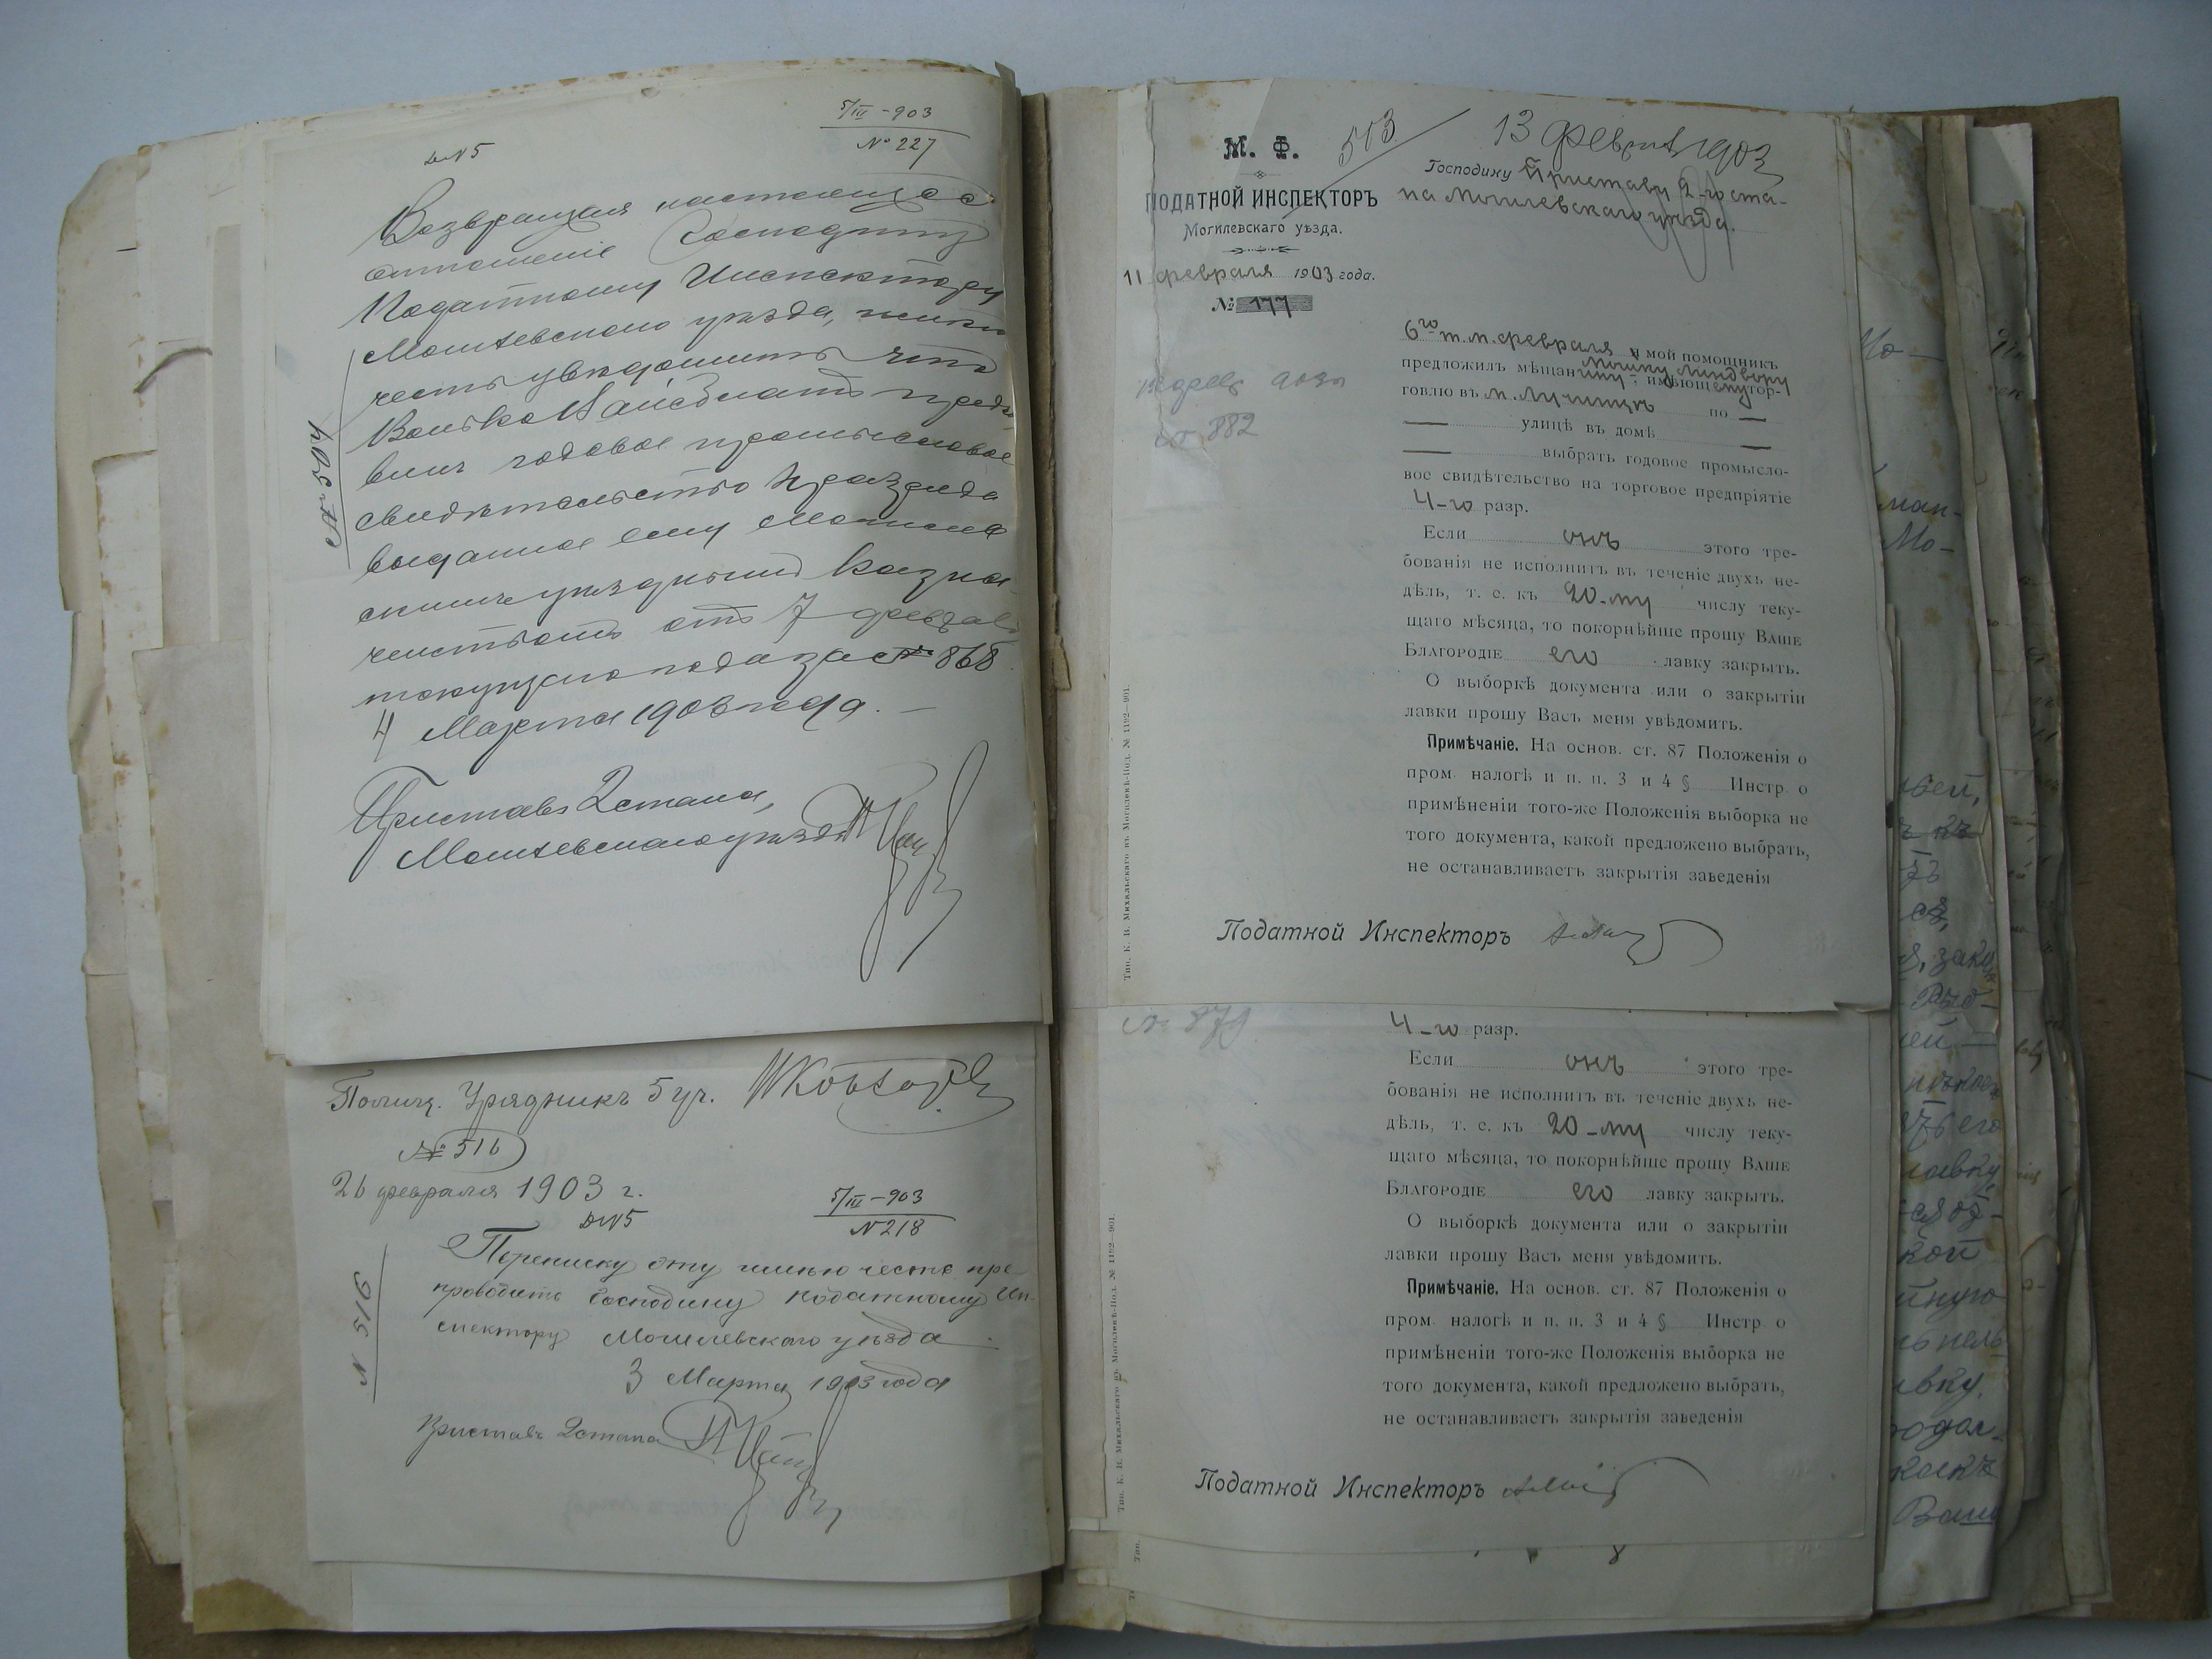 5/III - 903
№ 227
Д№5
Возвращая настоящее
отношеніе Господину
Податному Инспектору
Могилевскаго уѣзда, имѣю
честь увѣдомить что
Волько предъя
вилъ годовое промысловое
свидѣтельство 4 разряда
выданное ему Могилев
скимъ уѣзднымъ Казна
чействомъ отъ 7 февраля
текущаго года за № 868
4 Марта 1903 года.
Приставъ 2 стана,
Могилевскаго уѣзда
№ 504
Полиц. Урядникъ 5 уч.
№ 516
26 февраля 1903 г.
Д№5
5/III - 903
№ 218
Переписку эту имѣю честь пре-
проводить Господину Податному Ин-
спектору Могилевскаго уѣзда
3 Марта 1903 года
Приставъ 2 стана
№ 516
М. Ф.
503
13 февраля 1903
ПОДАТНОЙ ИНСПЕКТОРЪ
Могилевскаго уѣзда.
11 февраля 1903 года.
№ 177
Господину Приставу 2-го ста-
на Могилевскаго уѣзда.
№ 882
6го т.м. февраля мой помощникъ
предложилъ мѣщанину Мошку Линдвору, имѣющему тор-
говлю въ м. по —
— улицѣ въ домѣ —
— выбрать годовое промысло-
вое свидѣтельство на торговое предпріятіе
4-го разр.
Если онъ этого тре-
бованія не исполнитъ въ теченіе двухъ не-
дѣль, т. е. къ 20-му числу теку-
щаго мѣсяца, то покорнѣйше прошу ВАШЕ
БЛАГОРОДІЕ его лавку закрыть.
О выборкѣ документа или о закрытіи
лавки прошу Васъ меня увѣдомить.
Примѣчаніе. На основ. ст. 87 Положенія о
пром. налогѣ и п. п. 3 и 4 § Инстр. о
примѣненіи того-же Положенія выборка не
того документа, какой предложено выбрать,
не останавливаетъ закрытія заведенія
Податной Инспекторъ
Тип. К. В. Михальскаго въ Могилевѣ-Под. № 1192—901.
№ 879
4-го разр.
Если онъ этого тре-
бованія не исполнитъ въ теченіе двухъ не-
дѣль, т. е. къ 20-му числу теку-
щаго мѣсяца, то покорнѣйше прошу ВАШЕ
БЛАГОРОДІЕ его лавку закрыть.
О выборкѣ документа или о закрытіи
лавки прошу Васъ меня увѣдомить.
Примѣчаніе. На основ. ст. 87 Положенія о
пром. налогѣ и п. п. 3 и 4 § Инстр. о
примѣненіи того-же Положенія выборка не
того документа, какой предложено выбрать,
не останавливаетъ закрытія заведенія
Податной Инспекторъ
Тип. К. В. Михальскаго въ Могилевѣ-Под. № 1192—901.